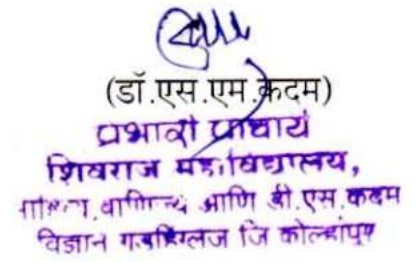 (डॉ.एस.एम.कदम)
प्रभारी प्राचार्य
शिवराज महाविद्यालय,
वाणिज्य आणि डी.एस.कदम
विज्ञान गडहिंग्लज जि कोल्हापूर